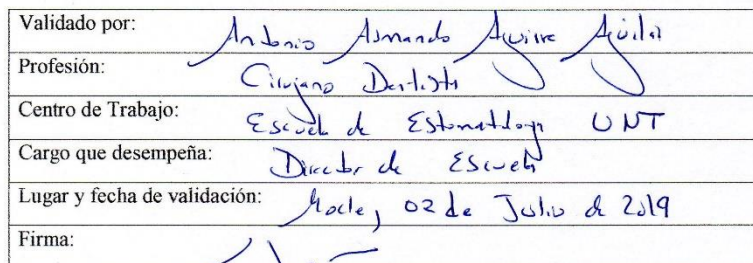 Validado por: Antonio Armando Aguirre Aguilar
Profesión: Cirujano Dentista
Centro de Trabajo: Escuela de Estomatología UNT
Cargo que desempeña: Director de Escuela
Lugar y fecha de validación: Moche, 02 de Julio de 2019
Firma: